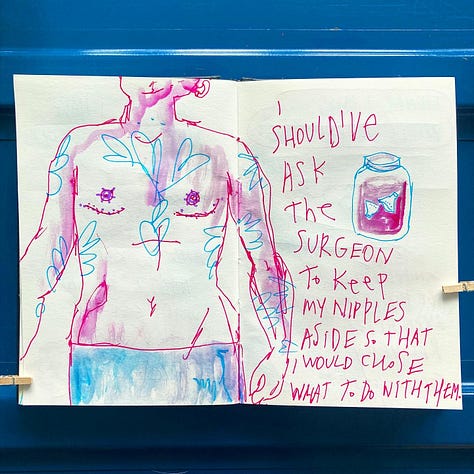 I
SHOULD'VE
ASK
the
SURGEON
To KEEP
MY NIPPLES
ASIDE SO THAT
I WOULD CHOSE
WHAT TO DO WITH THEM.